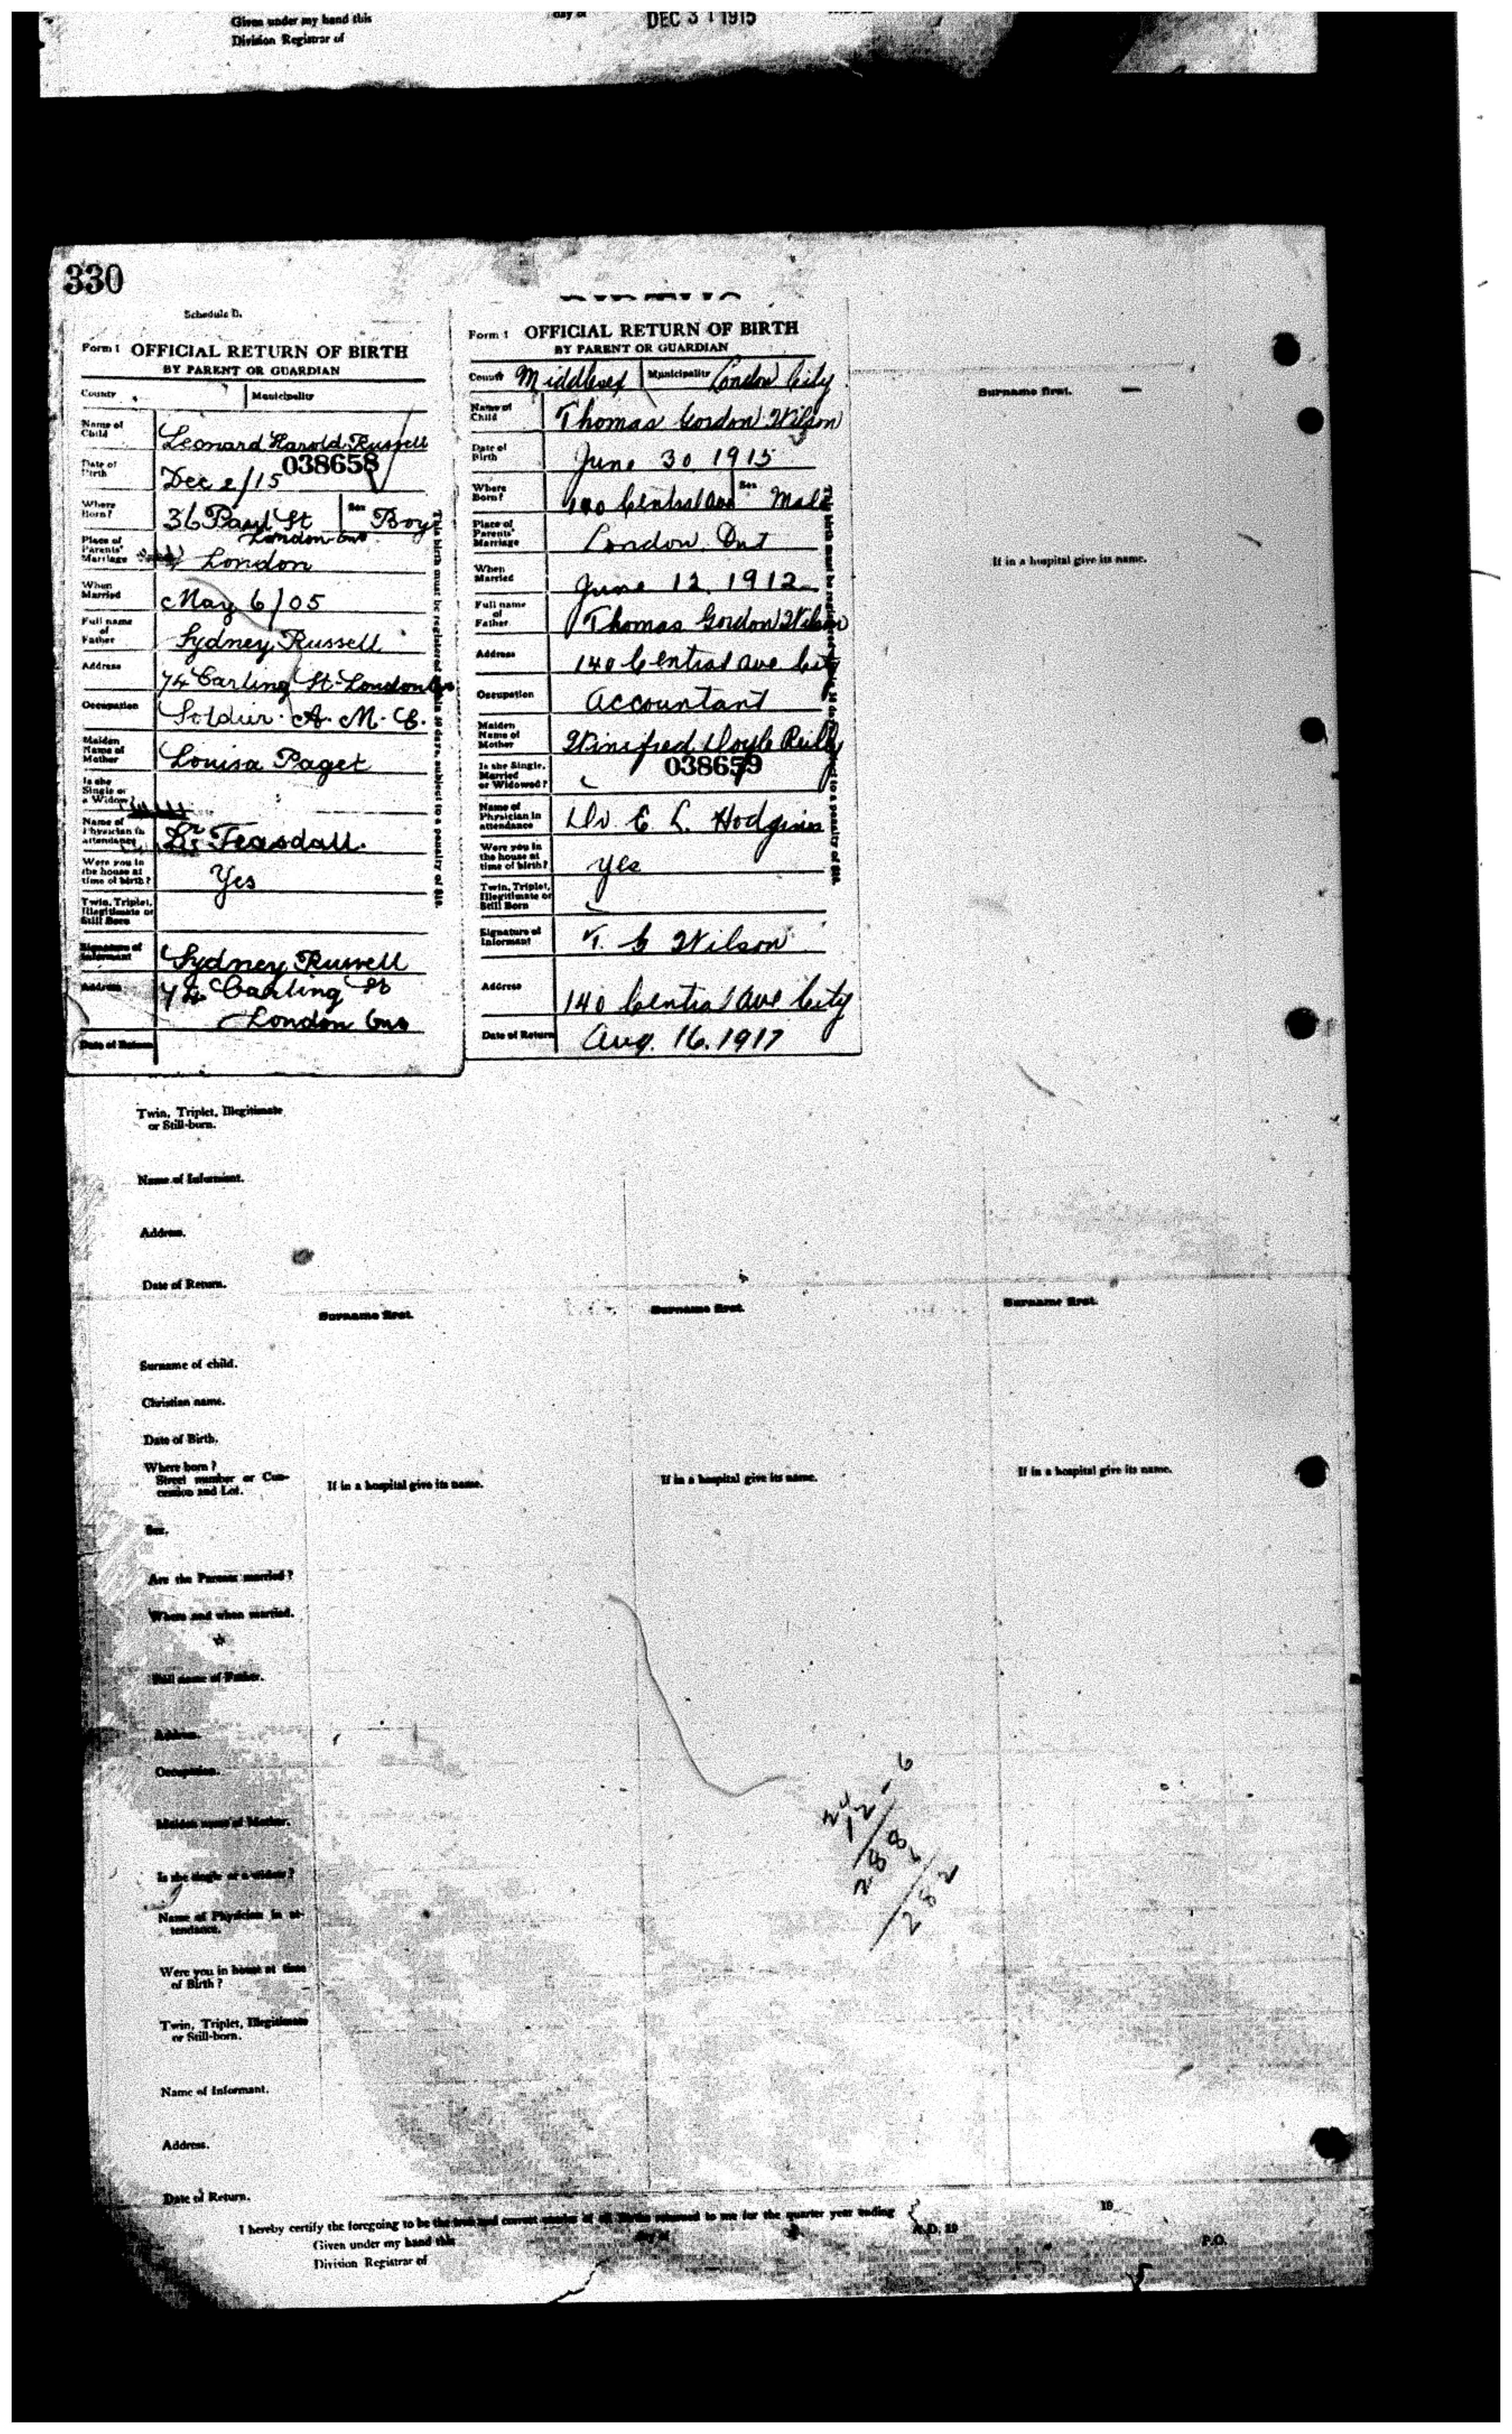 Given under my hand this
day of
DEC 31 1915
Division Registrar of
330
Schedule D.
Form 1 OFFICIAL RETURN OF BIRTH
BY PARENT OR GUARDIAN
County
Municipality
Name of Child
Leonard Harold Russell
038658
Date of Birth
Dec 2/15
Where Born?
36 Paul St
London Ont
Sex
Boy
Place of Parents' Marriage
London
When Married
May 6/05
Full name of Father
Sydney Russell
Address
74 Carling St. London Ont
Occupation
Soldier. A. M. C.
Maiden Name of Mother
Louisa Paget
Is she Single or a Widow?
Name of Physician in attendance
Dr Teasdall.
Were you in the house at time of birth?
Yes
Twin, Triplet, Illegitimate or Still Born
Signature of Informant
Sydney Russell
Address
74 Carling St
London Ont
Date of Return
This birth must be registered within 30 days, subject to a penalty of $10.
Form 1 OFFICIAL RETURN OF BIRTH
BY PARENT OR GUARDIAN
County Middlesex Municipality London City
Name of Child
Thomas Gordon Wilson
Date of Birth
June 30 1915
Where Born?
140 Central Ave
Sex
Male
Place of Parents' Marriage
London. Ont
When Married
June 12. 1912
Full name of Father
Thomas Gordon Wilson
Address
140 Central Ave City
Occupation
Accountant
Maiden Name of Mother
Winifred Doyle Reilly
038659
Is she Single, Married or Widowed?
Name of Physician in attendance
Dr. E. L. Hodgins
Were you in the house at time of birth?
yes
Twin, Triplet, Illegitimate or Still Born
Signature of Informant
T. G Wilson
Address
140 Central Ave City
Date of Return
Aug. 16. 1917
Surname first.
If in a hospital give its name.
Twin, Triplet, Illegitimate
or Still-born.
Name of Informant.
Address.
Date of Return.
Surname first.
Surname first.
Surname first.
Surname of child.
Christian name.
Date of Birth.
Where born?
Street number or Con-
cession and Lot.
If in a hospital give its name.
If in a hospital give its name.
If in a hospital give its name.
Sex.
Are the Parents married?
Where and when married.
Full name of Father.
Address.
Occupation.
Maiden name of Mother.
Is she single or a widow?
Name of Physician in at-
tendance.
Were you in house at time
of Birth?
Twin, Triplet, Illegitimate
or Still-born.
Name of Informant.
Address.
Date of Return.
24
12 - 6
288
6
282
I hereby certify the foregoing to be the true and correct of all Births returned to me for the quarter year ending
19
Given under my hand this
day of
A.D. 19
Division Registrar of
P.O.